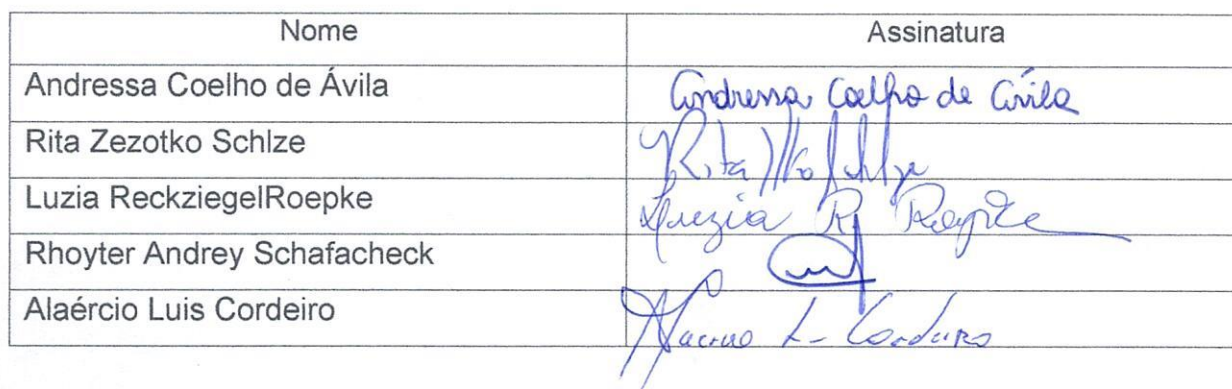 Nome Assinatura
Andressa Coelho de Ávila Andressa Coelho de Ávila
Rita Zezotko Schlze Rita
Luzia ReckziegelRoepke Luzia R. Roepke
Rhoyter Andrey Schafacheck
Alaércio Luis Cordeiro L. Cordeiro